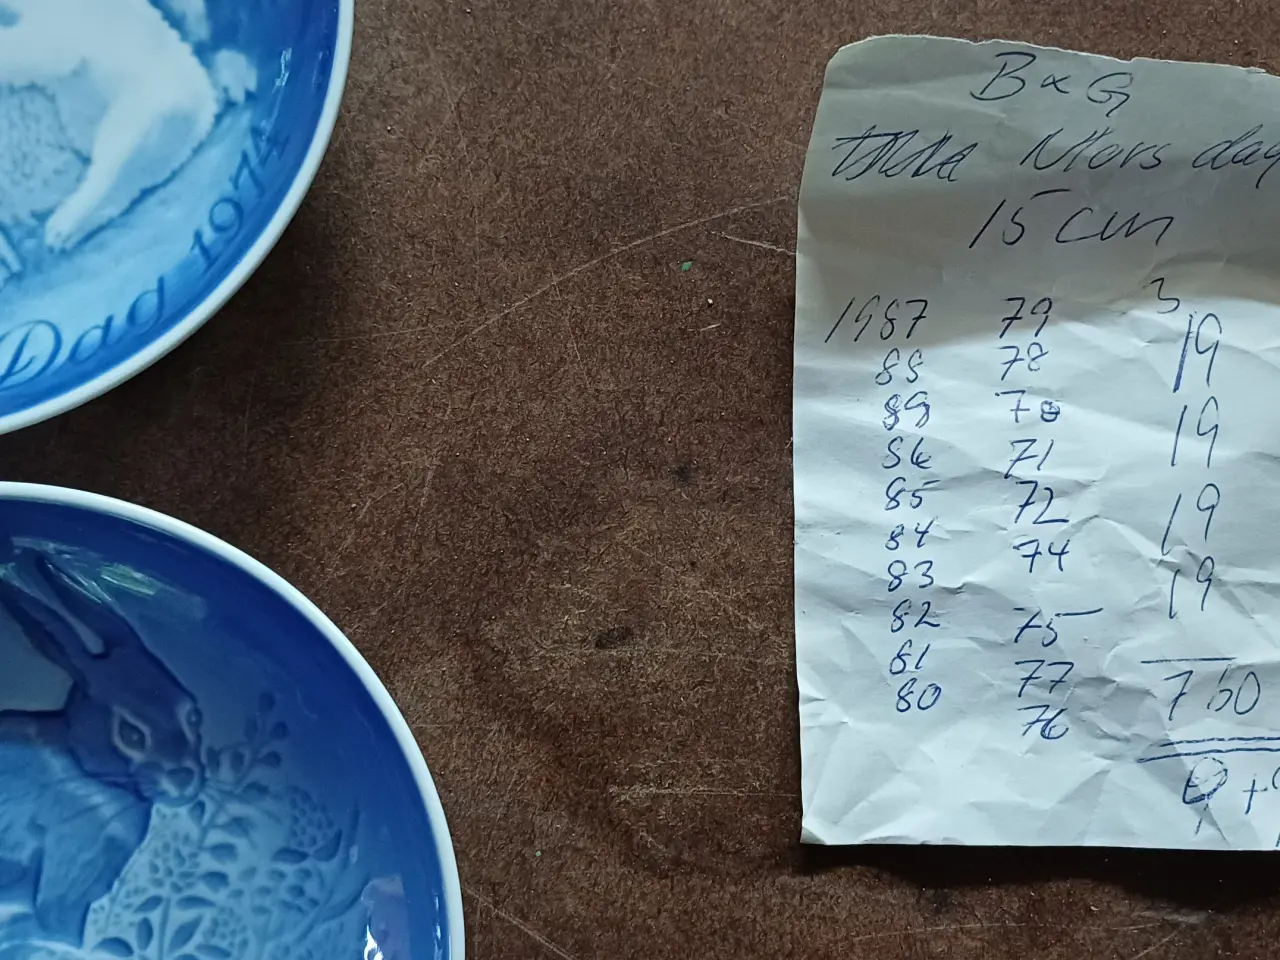 Dag 1974
B & G
Mors dag
15 cm
1987 79 3
88 78 19
89 70
86 71 19
85 72
84 74 19
83
82 75 19
81 77
80 76 760
9 +